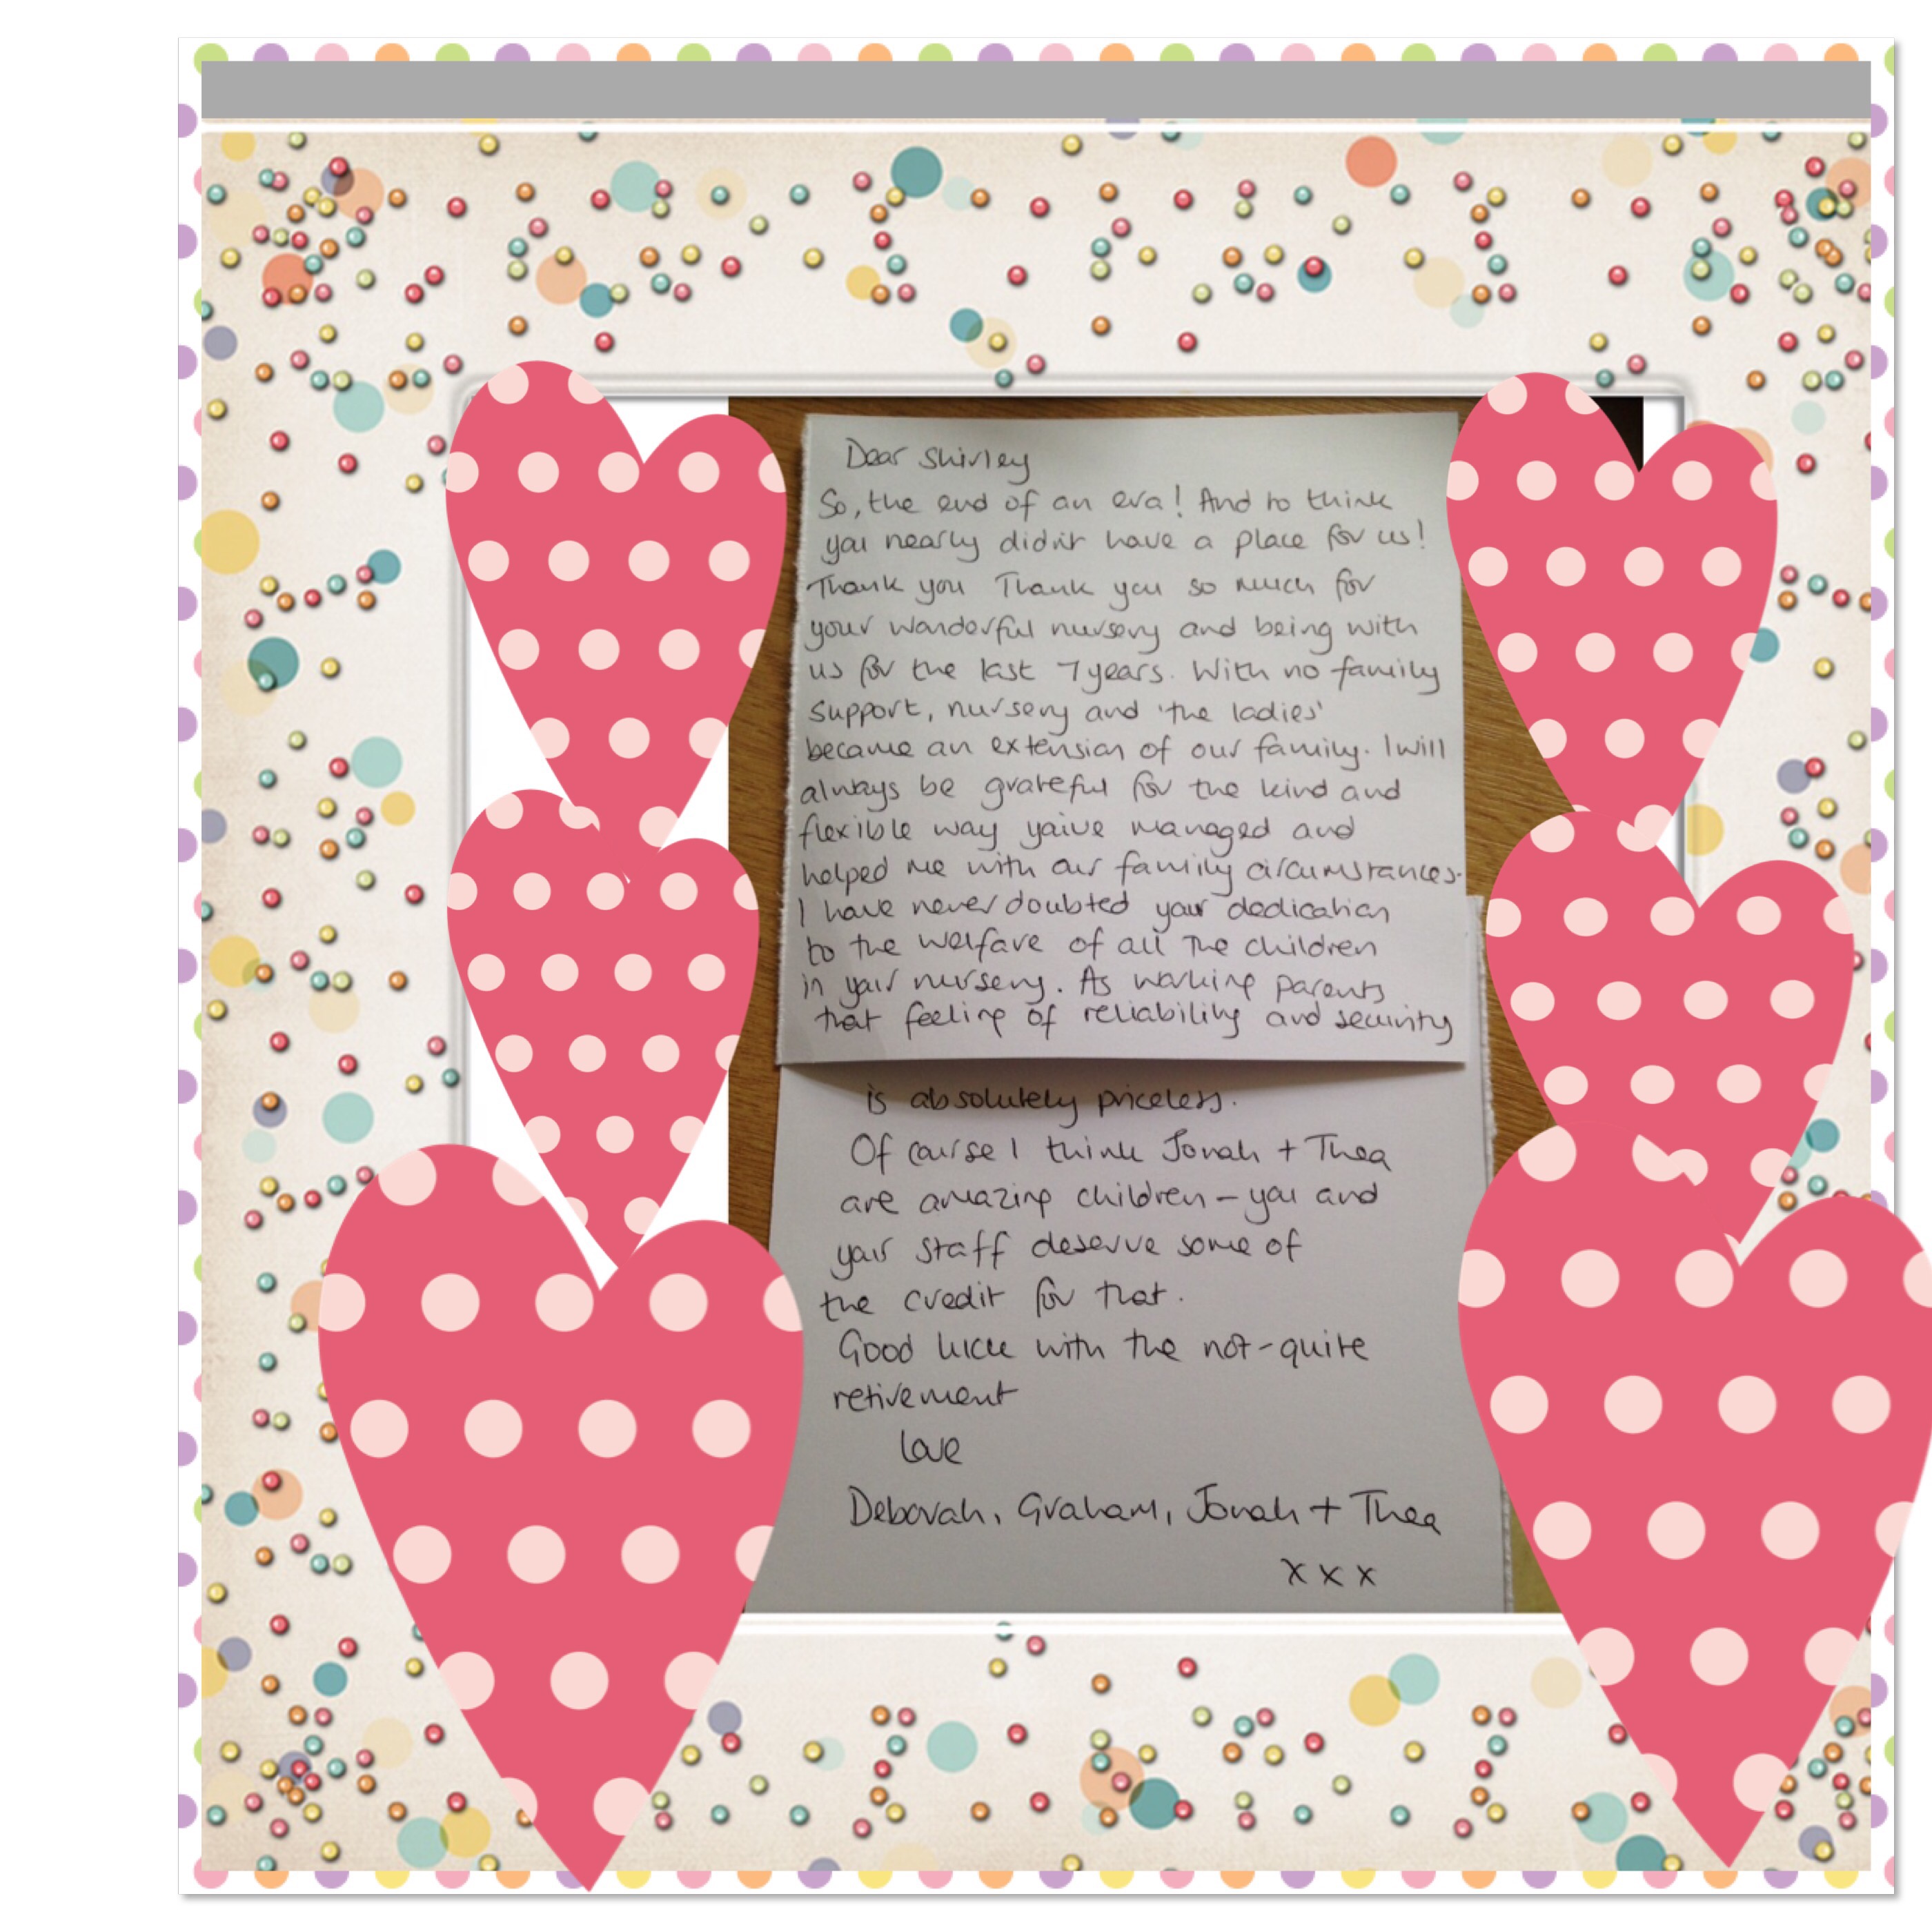 Dear Shirley
So, the end of an era! And to think
you nearly didn't have a place for us!
Thank you Thank you so much for
your wonderful nursery and being with
us for the last 7 years. With no family
support, nursery and 'the ladies'
became an extension of our family. I will
always be grateful for the kind and
flexible way you've managed and
helped me with our family circumstances.
I have never doubted your dedication
to the welfare of all the children
in your nursery. As working parents
that feeling of reliability and security
is absolutely priceless.
Of course I think Jonah + Thea
are amazing children - you and
your staff deserve some of
the credit for that.
Good luck with the not-quite
retirement
love
Deborah, Graham, Jonah + Thea
x x x